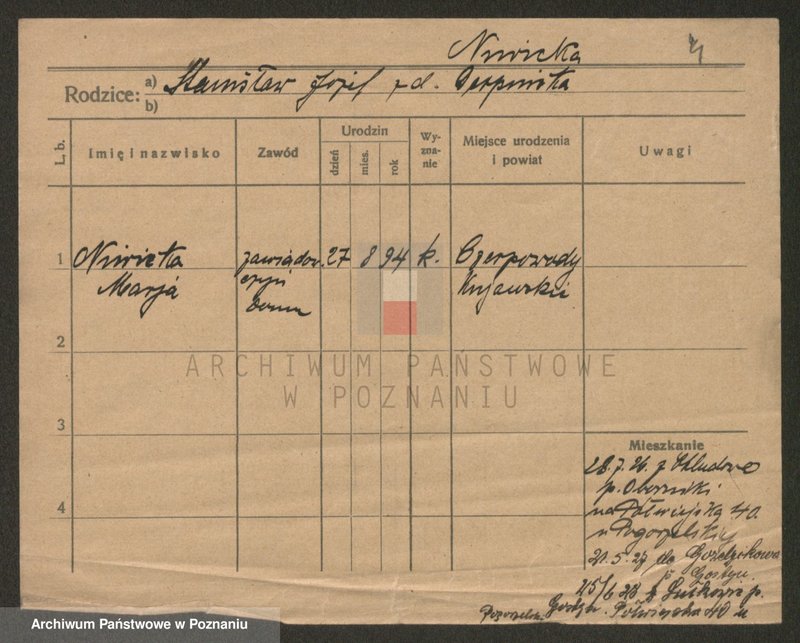 Niwicka
Rodzice: a) Stanisław Józef z d. Cerpińska
b)
L. b.
Imię i nazwisko
Zawód
Urodzin
dzień
mies.
rok
Wy-
zna-
nie
Miejsce urodzenia
i powiat
Uwagi
1
Niwicka
Marja
zawiadow.
domu
27
8
94
k.
Czerpowody
Kujawskie
2
3
4
Mieszkanie
28.7.26. z Chludowo
p. Oborniki
na Półwiejska 40.
u Pogorzelskiej
21.5.27 do
p. Gostyń.
15/6 28 z p.
Półwiejska 40 u
ARCHIWUM PAŃSTWOWE
W POZNANIU
Archiwum Państwowe w Poznaniu